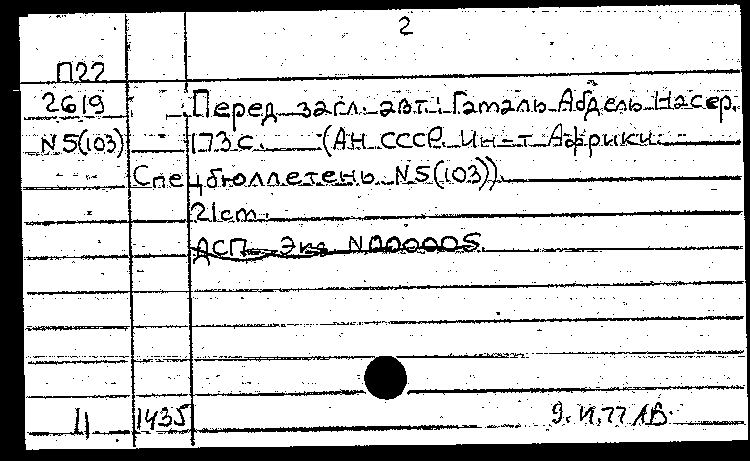 2
П22
2619 Перед загл. авт.: Гамаль Абдель Насер.
N5(103) 173 с. (АН СССР. Ин-т Африки.
Спецбюллетень N5(103)).
21 cm.
ДСП Экз N000005.
Ц 1435 9.VI.77 ЛВ.